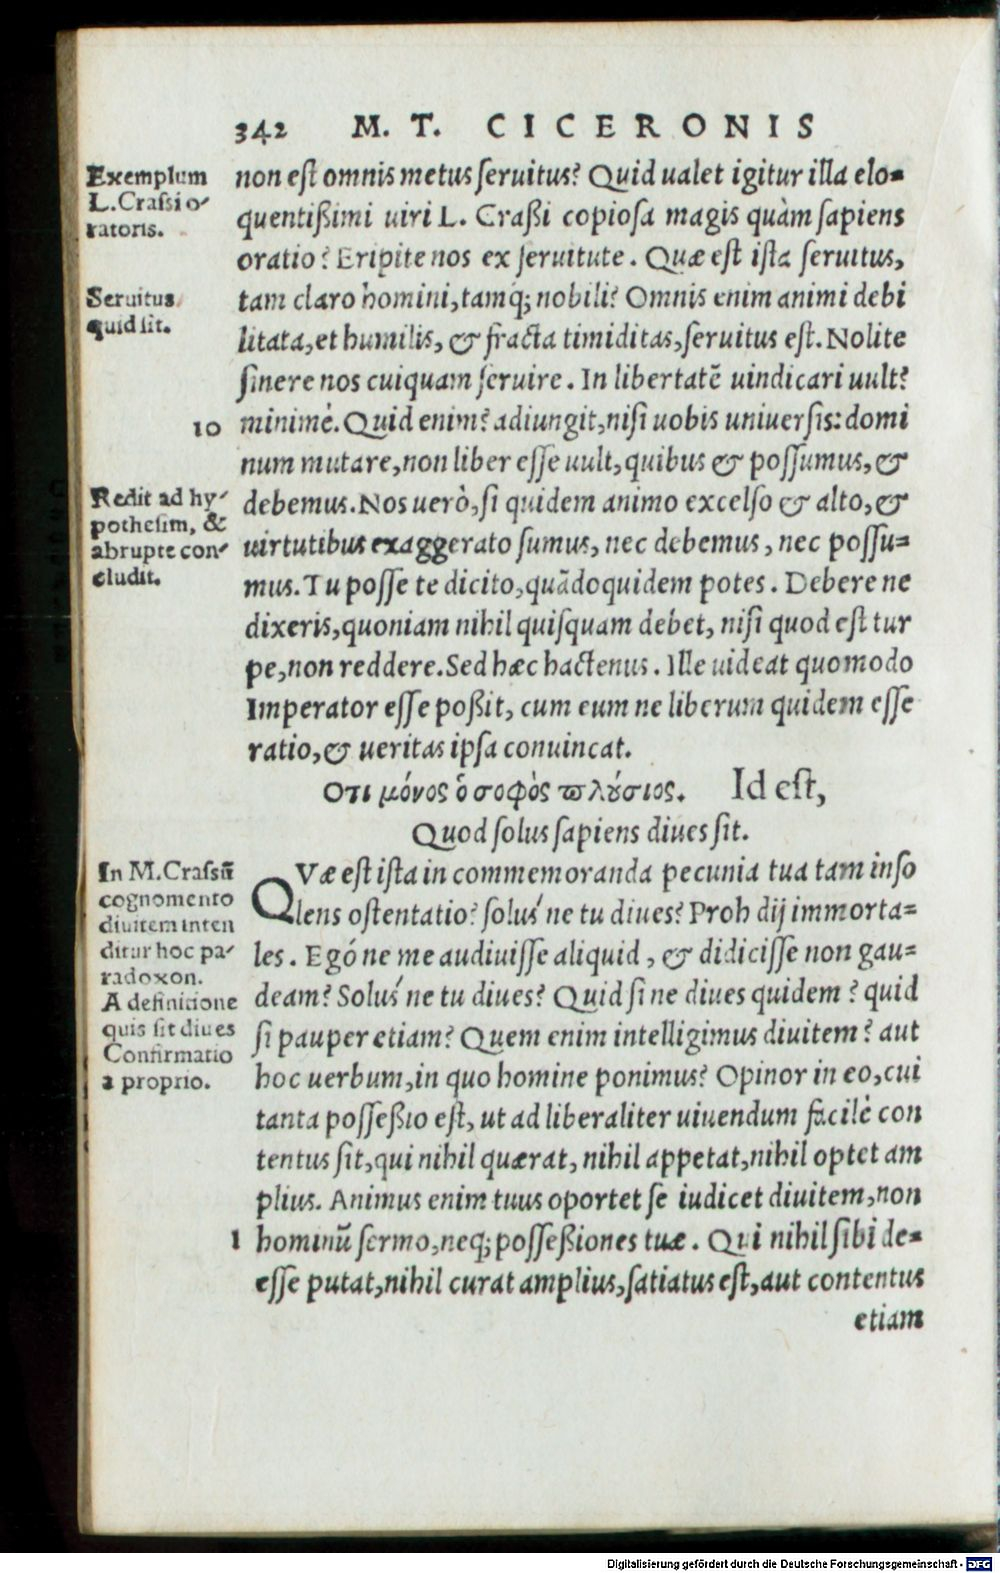 342 M. T. CICERONIS
Exemplum
L. Crassi o-
ratoris.
Seruitus
quid sit.
10
Redit ad hy-
pothesim, &
abrupte con-
cludit.
non est omnis metus seruitus? Quid ualet igitur illa elo-
quentißimi uiri L. Craßi copiosa magis quàm sapiens
oratio? Eripite nos ex seruitute. Quæ est ista seruitus,
tam claro homini, tamq; nobili? Omnis enim animi debi
litata, et humilis, & fracta timiditas, seruitus est. Nolite
sinere nos cuiquam seruire. In libertatē uindicari uult?
minimè. Quid enim? adiungit, nisi uobis uniuersis: domi
num mutare, non liber esse uult, quibus & possumus, &
debemus. Nos uerò, si quidem animo excelso & alto, &
uirtutibus exaggerato sumus, nec debemus, nec possu-
mus. Tu posse te dicito, quādoquidem potes. Debere ne
dixeris, quoniam nihil quisquam debet, nisi quod est tur
pe, non reddere. Sed hæc hactenus. Ille uideat quomodo
Imperator esse poßit, cum eum ne liberum quidem esse
ratio, & ueritas ipsa conuincat.
Οτι μόνος ὁ σοφὸς πλούσιος. Id est,
Quod solus sapiens diues sit.
In M. Crassū
cognomento
diuitem inten
ditur hoc pa-
radoxon.
A definitione
quis sit diues
Confirmatio
a proprio.
1
QVæ est ista in commemoranda pecunia tua tam inso
lens ostentatio? solus´ne tu diues? Proh dij immorta-
les. Egó ne me audiuisse aliquid, & didicisse non gau-
deam? Solus´ne tu diues? Quid si ne diues quidem? quid
si pauper etiam? Quem enim intelligimus diuitem? aut
hoc uerbum, in quo homine ponimus? Opinor in eo, cui
tanta possessio est, ut ad liberaliter uiuendum facilè con
tentus sit, qui nihil quærat, nihil appetat, nihil optet am
plius. Animus enim tuus oportet se iudicet diuitem, non
hominū sermo, neq; possessiones tuæ. Qui nihil sibi de-
esse putat, nihil curat amplius, satiatus est, aut contentus
etiam
Digitalisierung gefördert durch die Deutsche Forschungsgemeinschaft - DFG